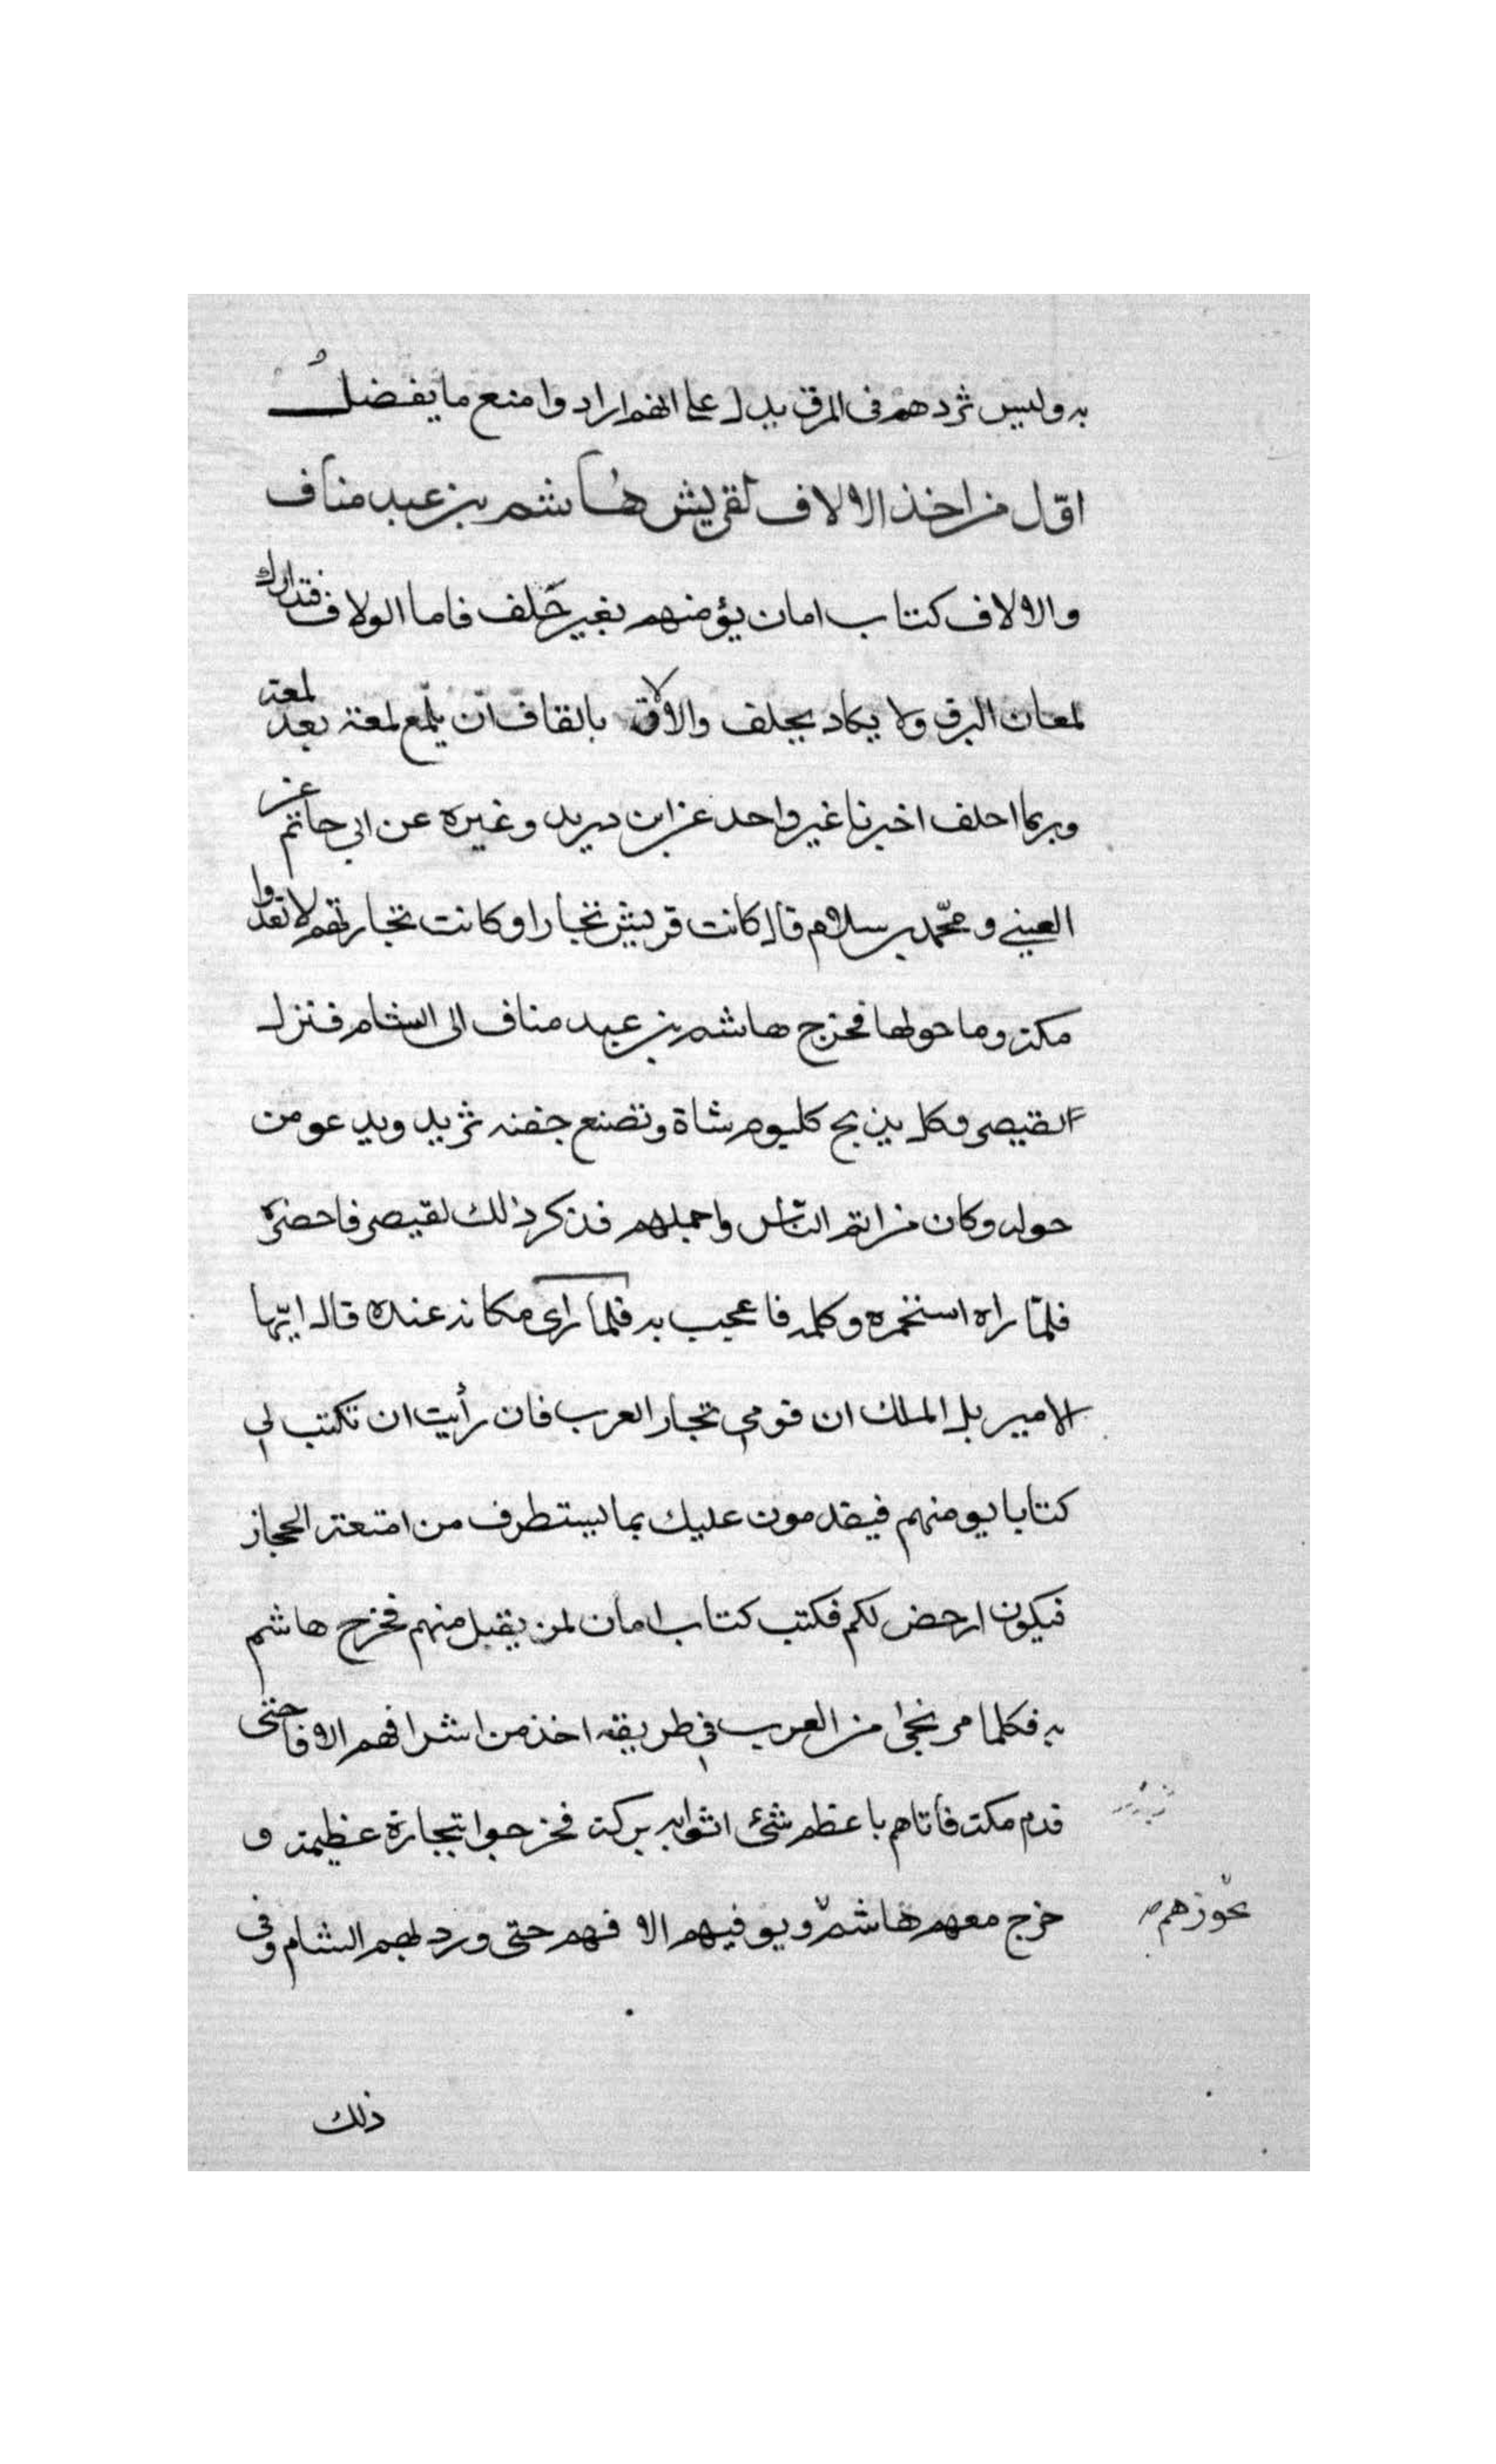 به وليس ثردهم فى المرق يدل على انهم ارادوا منع ما يفضل
اوّل من اخذ الالاف لقريش هاشم بن عبد مناف
والالاف كتاب امان يؤمنهم بغير حلف فاما الولاف فتدارك
لمعان البرق ولا يكاد يخلف والالاق بالقاف ان يلمع لمعة بعد لمعة
وربما اخلف اخبرنا غير واحد عن ابن دريد وغيره عن ابى حاتم عن
العتبى ومحمّد بن سلام قال كانت قريش تجارا وكانت تجارتهم لا تعدوا
مكة وما حولها فخرج هاشم بن عبد مناف الى الشام فنزل
القيصر فكان يذبح كل يوم شاة وتصنع جفنه ثريد ويدعو من
حوله وكان من اتم الناس واجملهم فذكر ذلك لقيصر فاحضره
فلمّا راه استخمره وكلمه فاعجب به فلما راى مكانه عنده قال ايّها
الامير بل الملك ان قومى تجار العرب فان رأيت ان تكتب لى
كتابا يومنهم فيقدمون عليك بما يستطرف من امتعة الحجاز
فيكون ارخص لكم فكتب كتاب امان لمن يقبل منهم فخرج هاشم
به فكلما مر بحى من العرب فى طريقه اخذ من اشرافهم الافا حتى
قدم مكة فأتاهم باعظم شئ اتوا به بركة فخرجوا بتجارة عظيمة و
خرج معهم هاشم ويوفيهم الافهم حتى ورد بهم الشام وفى
يجوزهم صح
ذلك